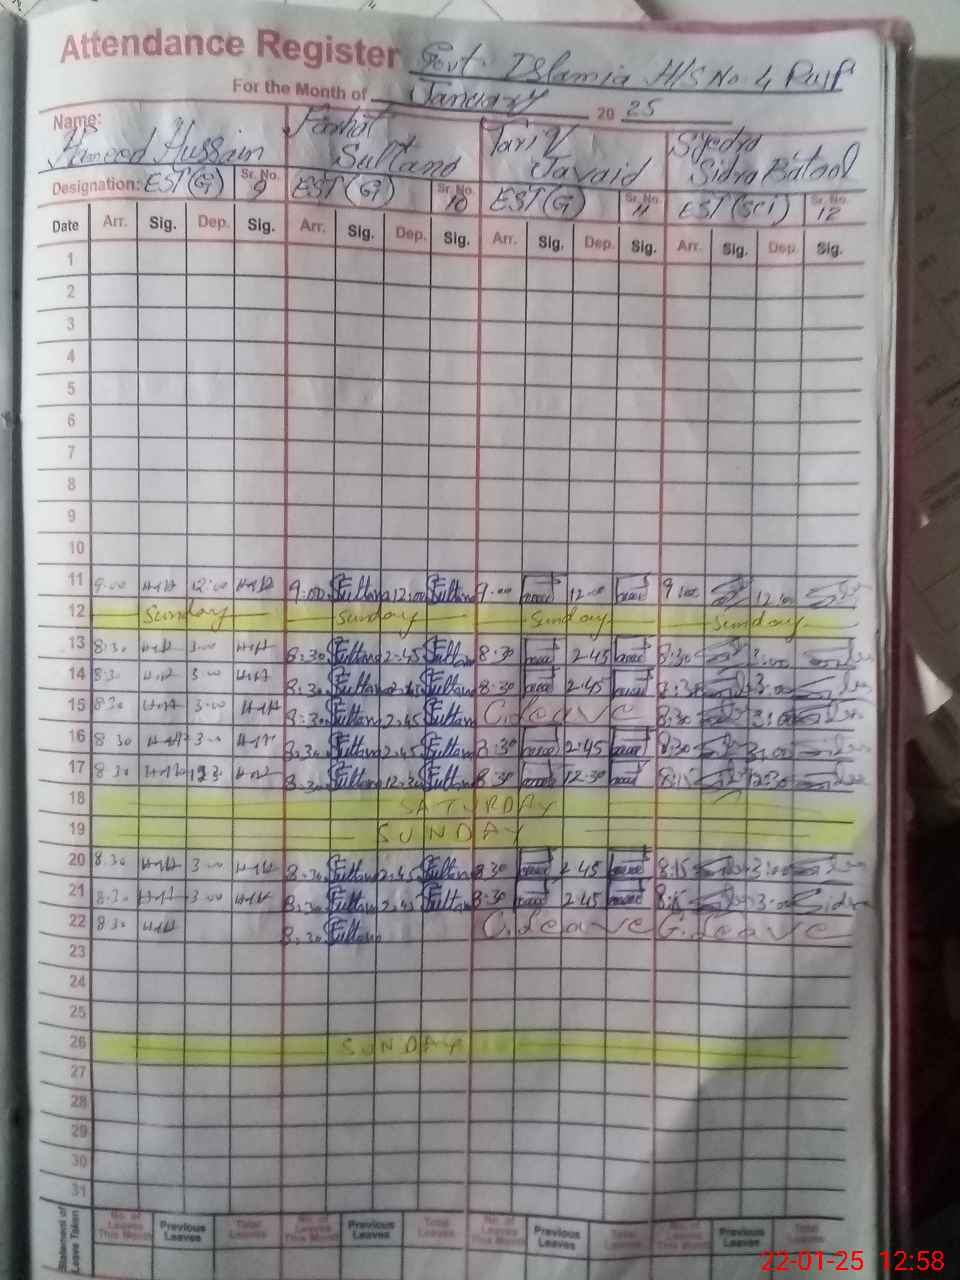 Attendance Register Govt. Islamia H/S No. 4
For the Month of January 20 25
Name: Hameed Hussain Farhat Sultana Tariq Javaid Syedra Sidra Batool
Designation: EST(G) Sr. No. 9 EST(G) Sr. No. 10 EST(G) Sr. No. 11 EST(Sci) Sr. No. 12
Date Arr. Sig. Dep. Sig. Arr. Sig. Dep. Sig. Arr. Sig. Dep. Sig. Arr. Sig. Dep. Sig.
1
2
3
4
5
6
7
8
9
10
11 9.00 12:00 9:00 Sultana 12:00 Sultana 9.00 12.00 9 12:00
12 Sunday Sunday Sunday Sunday
13 8:30 3.00 8:30 Sultana 2:45 Sultana 8:30 2.45 8:30 3:00
14 8:30 3.00 8:30 Sultana 2:45 Sultana 8:30 2.45 8:30 3:00
15 8:30 3.00 8:30 Sultana 2:45 Sultana C.Leave 8:30 3:00
16 8 30 3.00 8:30 Sultana 2:45 Sultana 8:30 2.45 8:30 3:00
17 8 30 8:30 Sultana 12:30 Sultana 8:30 12.30 8:15 12:30
18 SATURDAY
19 SUNDAY
20 8.30 3.00 8:30 Sultana 2:45 Sultana 8:30 2.45 8:15 3:00
21 8:30 3.00 8:30 Sultana 2:45 Sultana 8:30 2.45 8:15 3:00 Sidra
22 8 30 8:30 Sultana C.Leave C.Leave
23
24
25
26 SUNDAY
27
28
29
30
31
Statement of Leave Taken No. of Leaves This Month Previous Leaves Total Leaves No. of Leaves This Month Previous Leaves Total Leaves No. of Leaves This Month Previous Leaves Total Leaves No. of Leaves This Month Previous Leaves Total Leaves
22-01-25 12:58